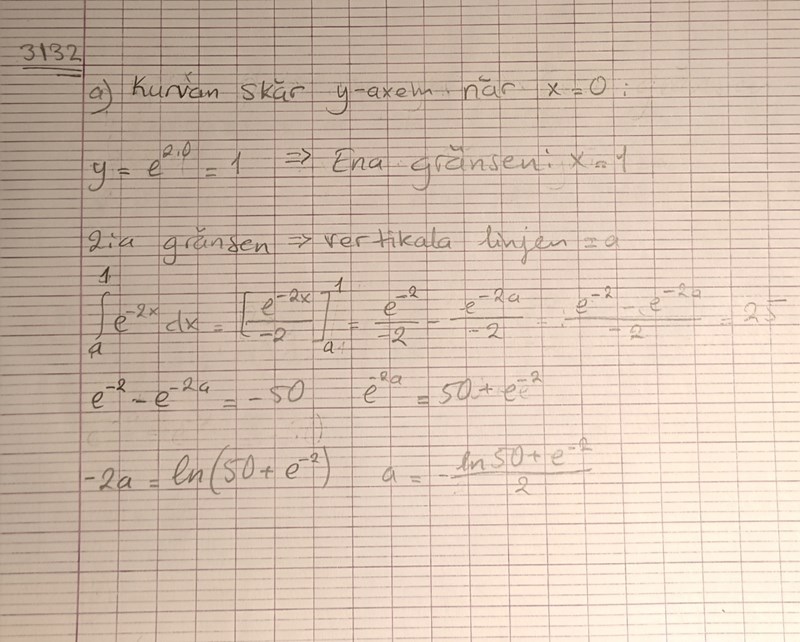 3132
a) Kurvan skär y-axem när x=0:
y = e^{2·0} = 1 ⇒ Ena gränsen: x=1
2ia gränsen ⇒ vertikala linjen = a
∫_a^1 e^{-2x} dx = [e^{-2x}/-2]_a^1 = e^{-2}/-2 - e^{-2a}/-2 = (e^{-2} - e^{-2a})/-2 = 25
e^{-2} - e^{-2a} = -50 e^{-2a} = 50 + e^{-2}
-2a = ln(50 + e^{-2}) a = -(ln 50 + e^{-2})/2